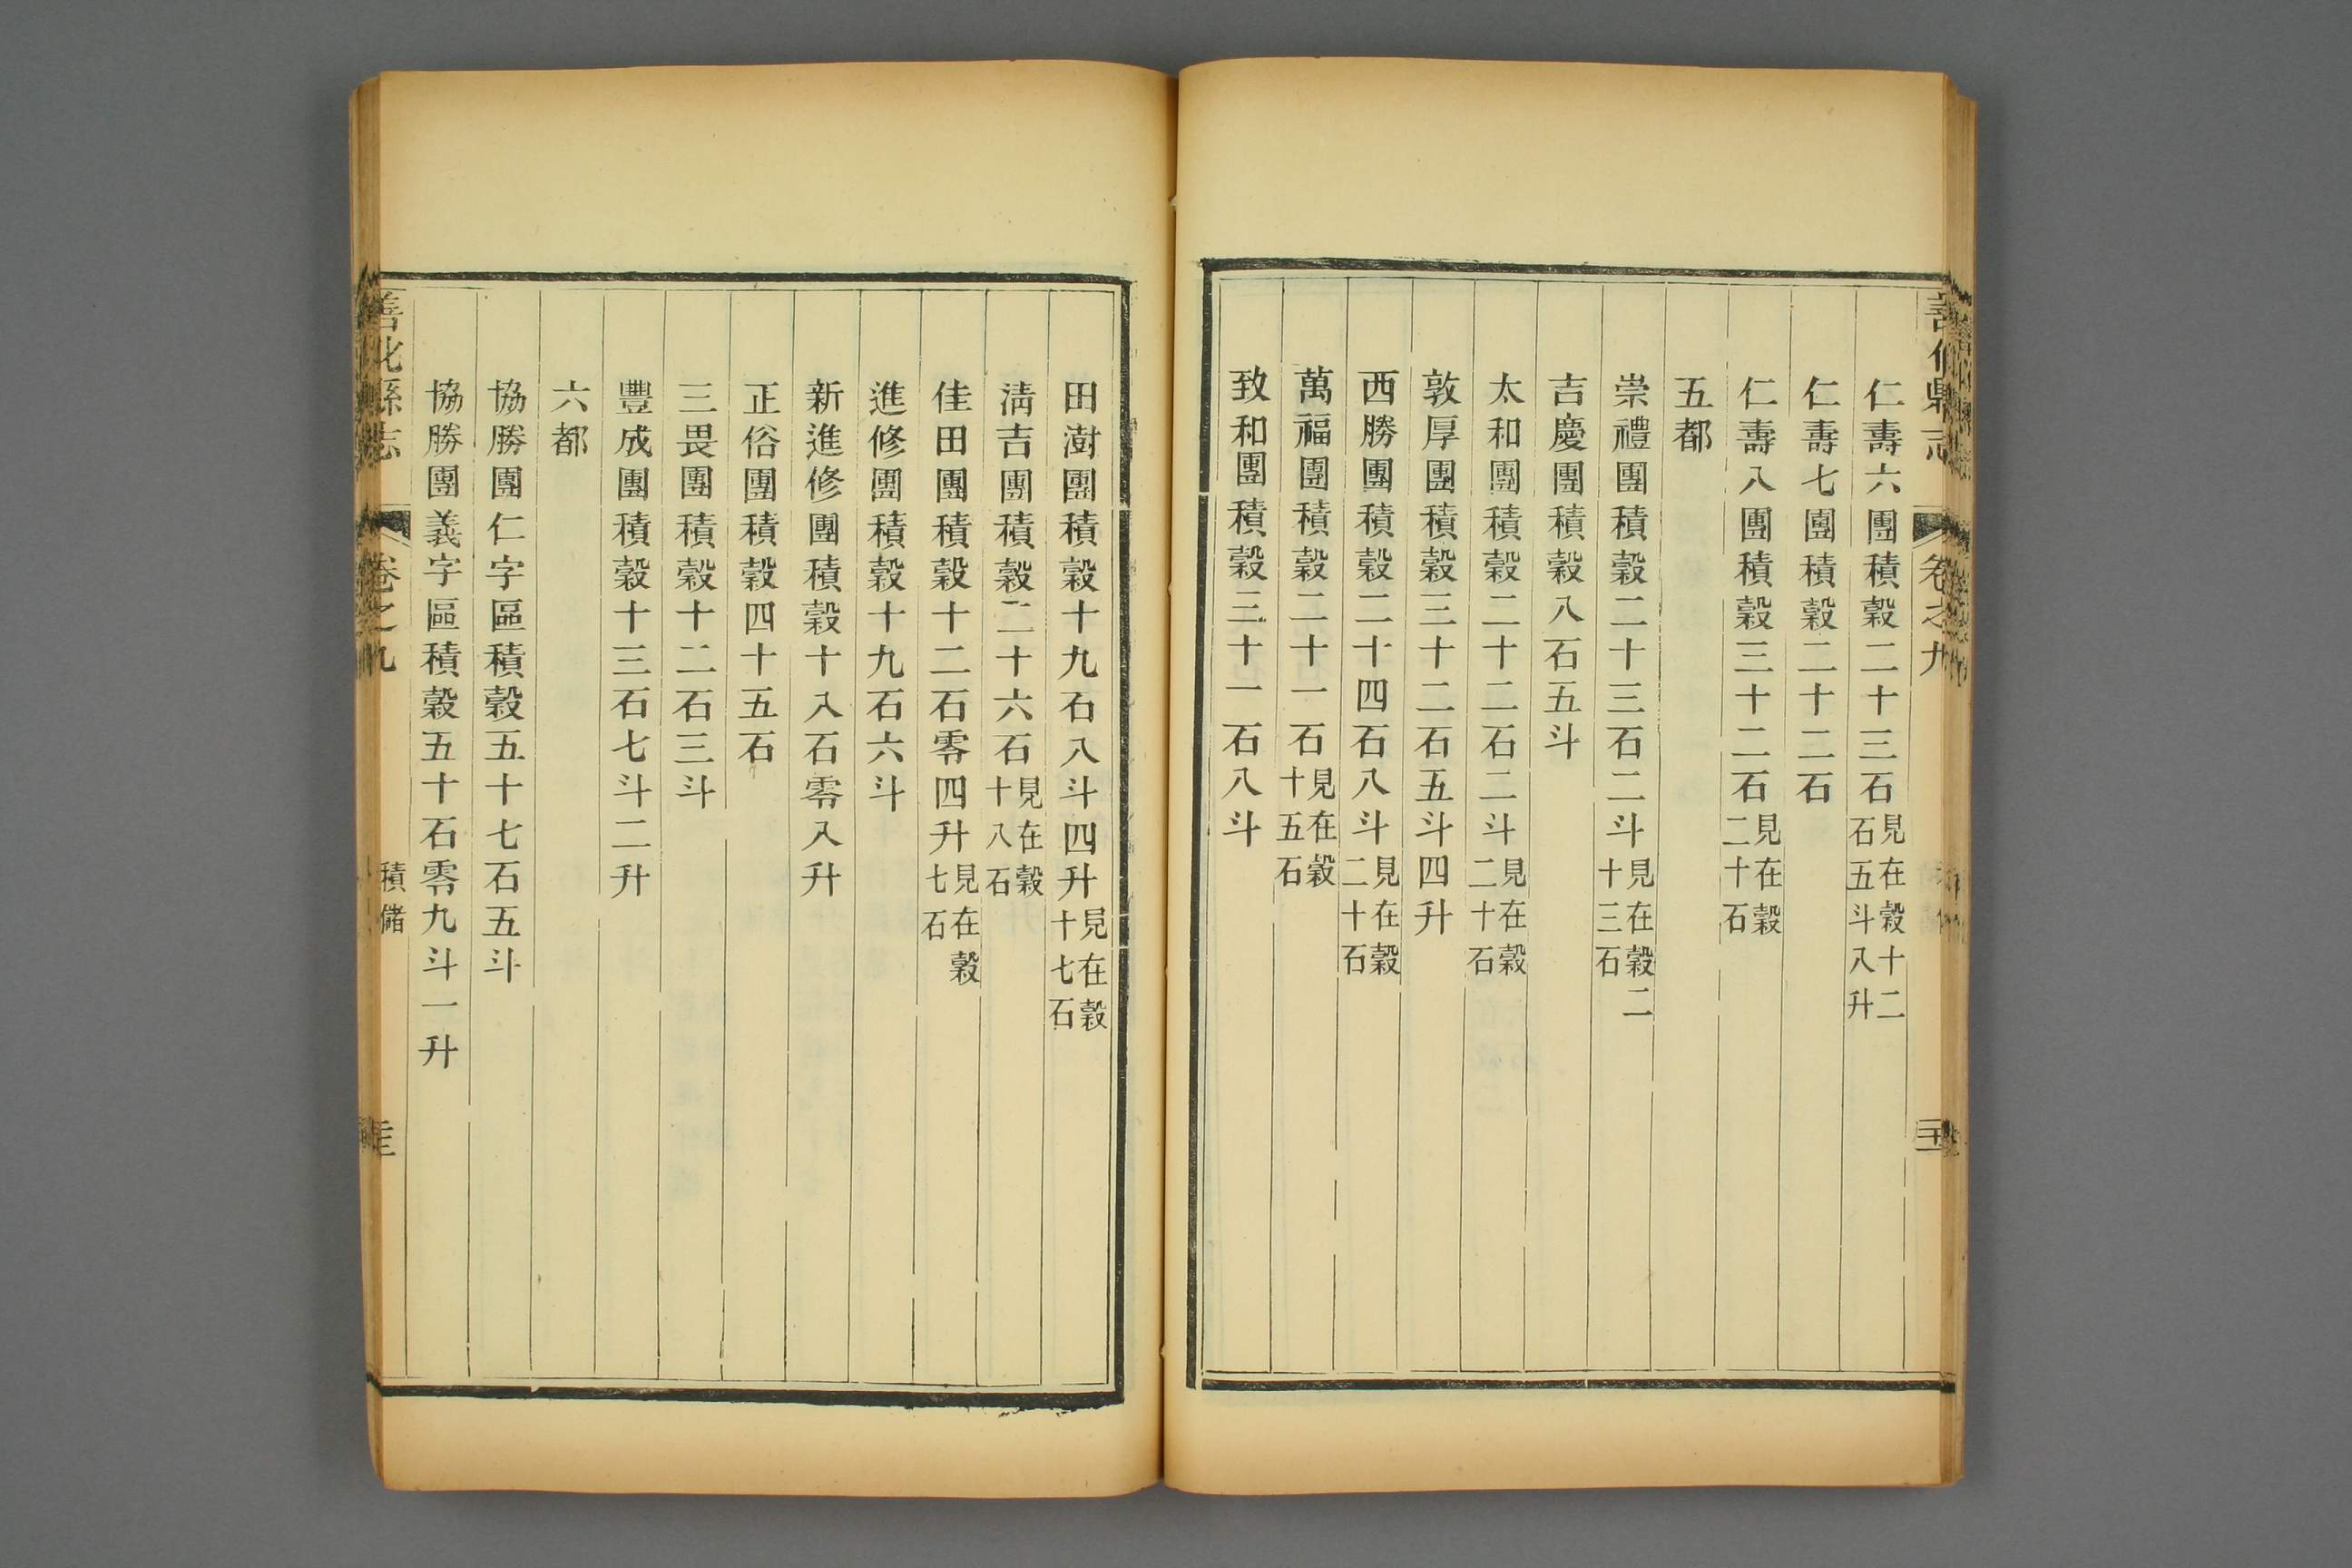 仁壽六團積穀二十三石見在穀十二石五斗八升
仁壽七團積穀二十二石
仁壽八團積穀三十二石見在穀二十石
五都
崇禮團積穀二十三石二斗見在穀二十三石
吉慶團積穀八石五斗
太和團積穀二十二石二斗見在穀二十石
敦厚團積穀三十二石五斗四升
西勝團積穀二十四石八斗見在穀二十石
萬福團積穀二十一石見在穀十五石
致和團積穀三十一石八斗
田澍團積穀十九石八斗四升見在穀十七石
淸吉團積穀二十六石見在穀十八石
佳田團積穀十二石零四升見在穀七石
進修團積穀十九石六斗
新進修團積穀十八石零八升
正俗團積穀四十五石
三畏團積穀十二石三斗
豐成團積穀十三石七斗二升
六都
協勝團仁字區積穀五十七石五斗
協勝團義字區積穀五十石零九斗一升
善化縣志 卷之九 積儲